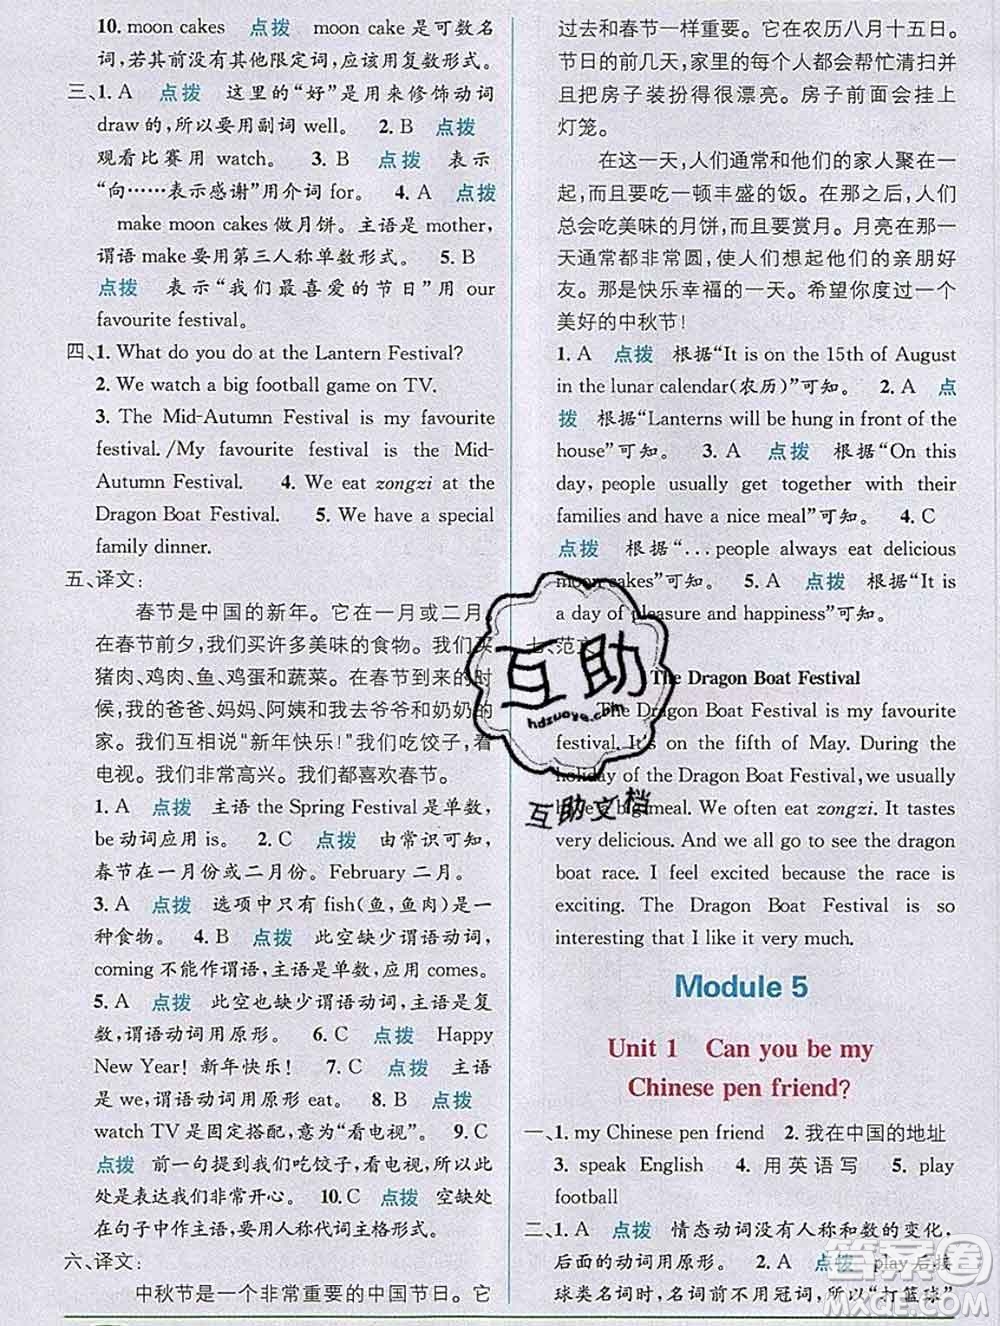 10. moon cakes 点拨 moon cake是可数名
词,若其前没有其他限定词,应该用复数形式。
三、1. A 点拨 这里的“好”是用来修饰动词
draw的,所以要用副词 well。 2. B 点拨
观看比赛用 watch。 3. B 点拨 表示
“向……表示感谢”用介词 for。 4. A 点拨
make moon cakes 做月饼。主语是 mother,
谓语 make 要用第三人称单数形式。 5. A
点拨 表示“我们最喜爱的节日”用 our
favourite festival。
四、1. What do you do at the Lantern Festival?
2. We watch a big football game on TV.
3. The Mid-Autumn Festival is my favourite
festival. /My favourite festival is the Mid-
Autumn Festival. 4. We eat zongzi at the
Dragon Boat Festival. 5. We have a special
family dinner.
五、译文:
春节是中国的新年。它在一月或二月。
在春节前夕,我们买许多美味的食物。我们买
猪肉、鸡肉、鱼、鸡蛋和蔬菜。在春节到来的时
候,我的爸爸、妈妈、阿姨和我去爷爷和奶奶的
家。我们互相说“新年快乐!”我们吃饺子,看
电视。我们非常高兴。我们都喜欢春节。
1. A 点拨 主语 the Spring Festival 是单数,
be动词应用 is。 2. C 点拨 由常识可知,
春节在一月份或二月份。February 二月。
3. A 点拨 选项中只有 fish(鱼,鱼肉)是一
种食物。 4. B 点拨 此空缺少谓语动词,
coming 不能作谓语,主语是单数,应用 comes。
5. A 点拨 此空也缺少谓语动词,主语是复
数,谓语动词用原形。 6. C 点拨 Happy
New Year! 新年快乐! 7. C 点拨 主语
是 we,谓语动词用原形 eat。 8. B 点拨
watch TV 是固定搭配,意为“看电视”。 9. C
点拨 前一句提到我们吃饺子,看电视,所以
是表达我们非常开心。 10. C 点拨 空缺处
在句子中作主语,要用人称代词主格形式。
六、译文:
中秋节是一个非常重要的中国节日。它
过去和春节一样重要。它在农历八月十五日。
节日的前几天,家里的每个人都会帮忙清扫并
且把房子装扮得很漂亮。房子前面会挂上
灯笼。
在这一天,人们通常和他们的家人聚在一
起,而且要吃一顿丰盛的饭。在那之后,人们总
会吃美味的月饼,而且要赏月。月亮在那一
天通常都非常圆,这会让他们想起他们的亲朋好
友。那是快乐幸福的一天。希望你度过一个
美好的中秋节!
1. A 点拨 根据“It is on the 15th of August
in the lunar calendar(农历)”可知。 2. A 点
拨 根据“Lanterns will be hung in front of the
house”可知。 3. A 点拨 根据“On this
day, people usually get together with their
families and have a nice meal”可知。 4. C
点拨 根据“...people always eat delicious
moon cakes”可知。 5. A 点拨 根据“It is
a day of pleasure and happiness”可知。
七、范文:
The Dragon Boat Festival
The Dragon Boat Festival is my favourite
festival. It's on the fifth of May. During the
holiday of the Dragon Boat Festival, we usually
have a big meal. We often eat zongzi. It tastes
very delicious. And we all go to see the dragon
boat race. I feel excited because the race is
exciting. The Dragon Boat Festival is so
interesting that I like it very much.
Module 5
Unit 1 Can you be my
Chinese pen friend?
一、1. my Chinese pen friend 2. 我在中国的地址
3. speak English 4. 用英语写 5. play
football
二、1. A 点拨 情态动词没有人称和数的变化,
后面的动词用原形。 2. A 点拨 play后接
球类名词时,名词前不用冠词,所以“打篮球”
互助
hdzuoye.com
互助文档
答案圈
MXQE.COM